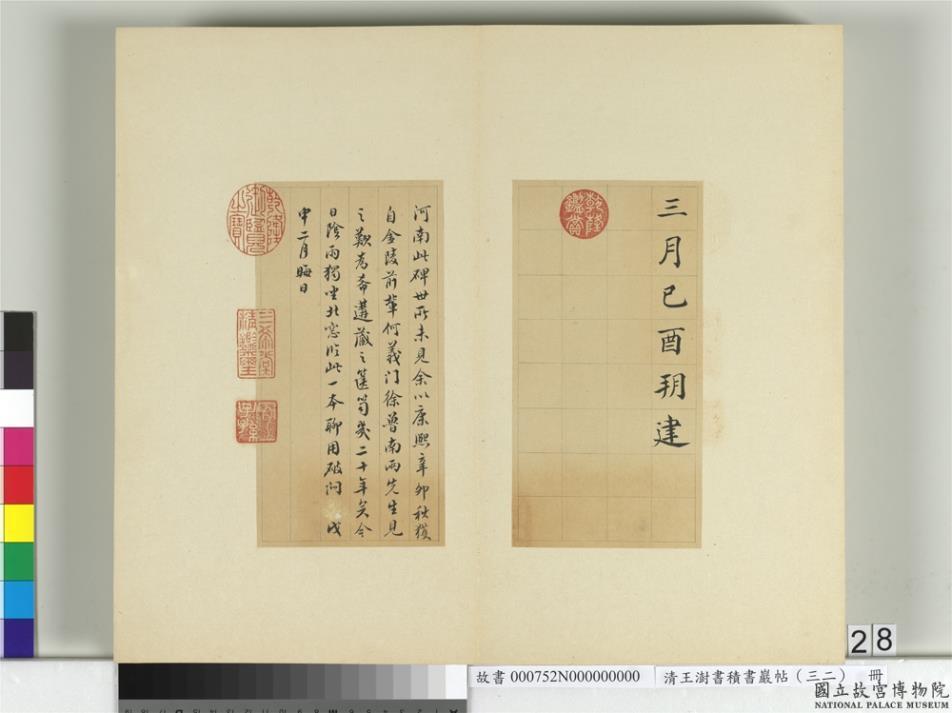 三月己酉玥建
河南此碑世所未見余以康熙辛卯秋獲
自金陵前輩何義门徐魯南兩先生見
之歎為奇遘藏之篋笥幾二十年矣今
日陰雨獨坐北窓臨此一本聊用破悶 戊
申二月晦日
乾隆
鑑賞
乾隆御覽之寶
三希堂精鑑璽
宜子孫
28
故書 000752N000000000
清王澍書積書巖帖（三二） 冊
國立故宮博物院
NATIONAL PALACE MUSEUM